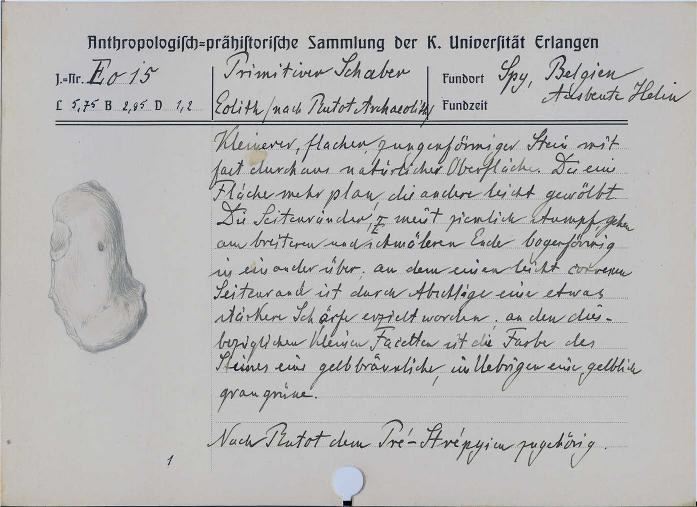 Anthropologisch=prähistorische Sammlung der K. Universität Erlangen
J.=Nr. Eo 15
L 5,75 B 2,95 D 1,2
Primitiver Schaber
Eolith (nach Rutot Archaeolith)
Fundort Spy, Belgien
Ausbeute Helin
Fundzeit
Kleinerer, flacher, zungenförmiger Stein mit
fast durchaus natürlicher Oberfläche. Die eine
Fläche mehr plan, die andere leicht gewölbt.
Die Seitenränder, meist ziemlich stumpf, gehen
am breiteren und schmäleren Ende bogenförmig
in einander über. an dem einen leicht convexen
Seitenrand ist durch Abschläge eine etwas
stärkere Schärfe erzielt worden; an den dies-
bezüglichen kleinen Facetten ist die Farbe des
Steines eine gelbbräunliche, im Uebrigen eine gelblich
graugrüne.
Nach Rutot dem Pré-Strépyien zugehörig.
1